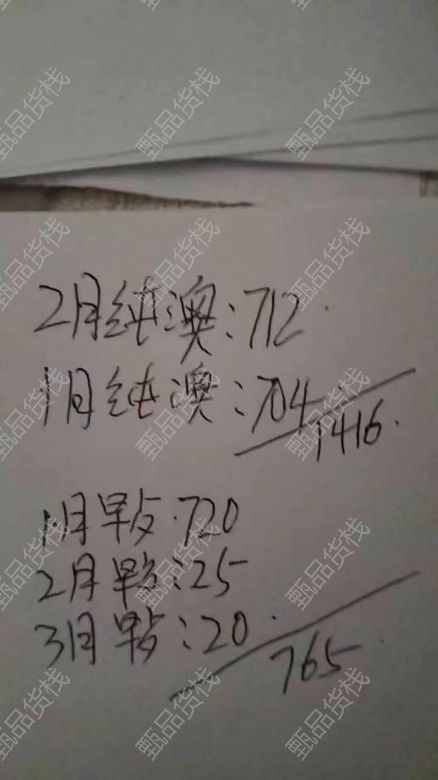 2月纯澳:712.
1月纯澳:704.
1416.
1月早点.720
2月早点:25
3月早点:20.
765
甄品货栈